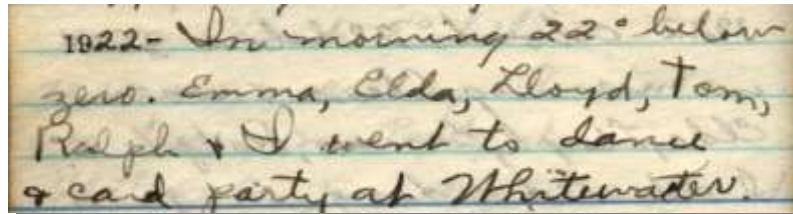 1922- In morning 22° below
zero. Emma, Elda, Lloyd, Tom,
Ralph & I went to dance
& card party at Whitewater.